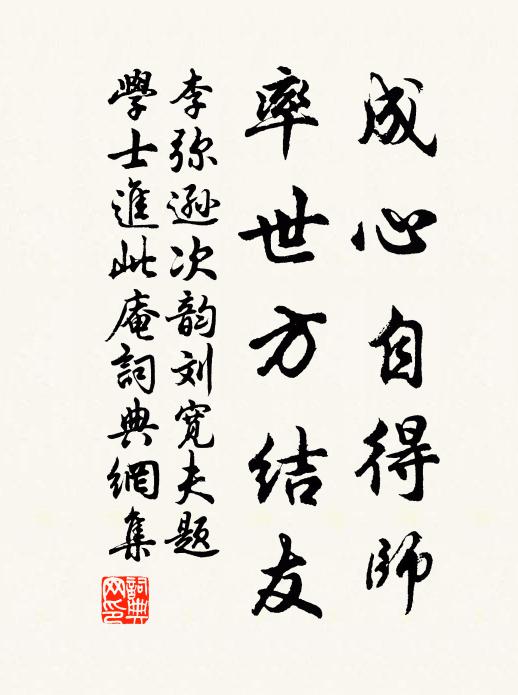 成心自得師
率世方结友
李弥逊次韵刘宽夫题
學士進此庵詞典網集
詞典網印